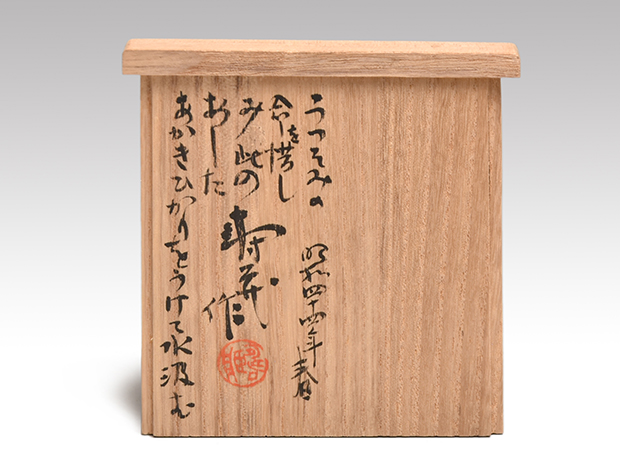 うつそみの
命を惜し
み此の
あした
あかきひかりをうけて水汲む
昭和四十四年 春
寿蔵
作